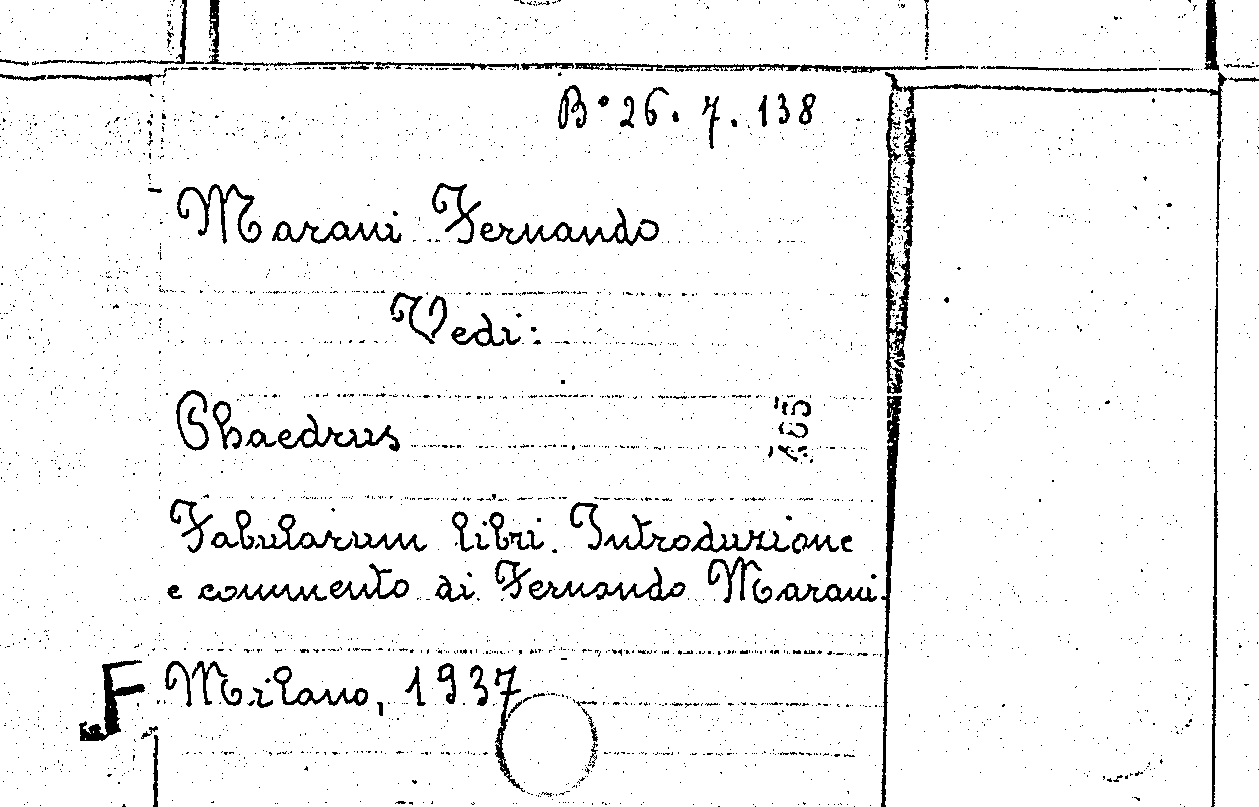 B° 26. 7. 138
Marani Fernando
Vedi:
Phaedrus
A05
Fabularum libri. Introduzione
e commento di Fernando Marani.
F Milano, 1937